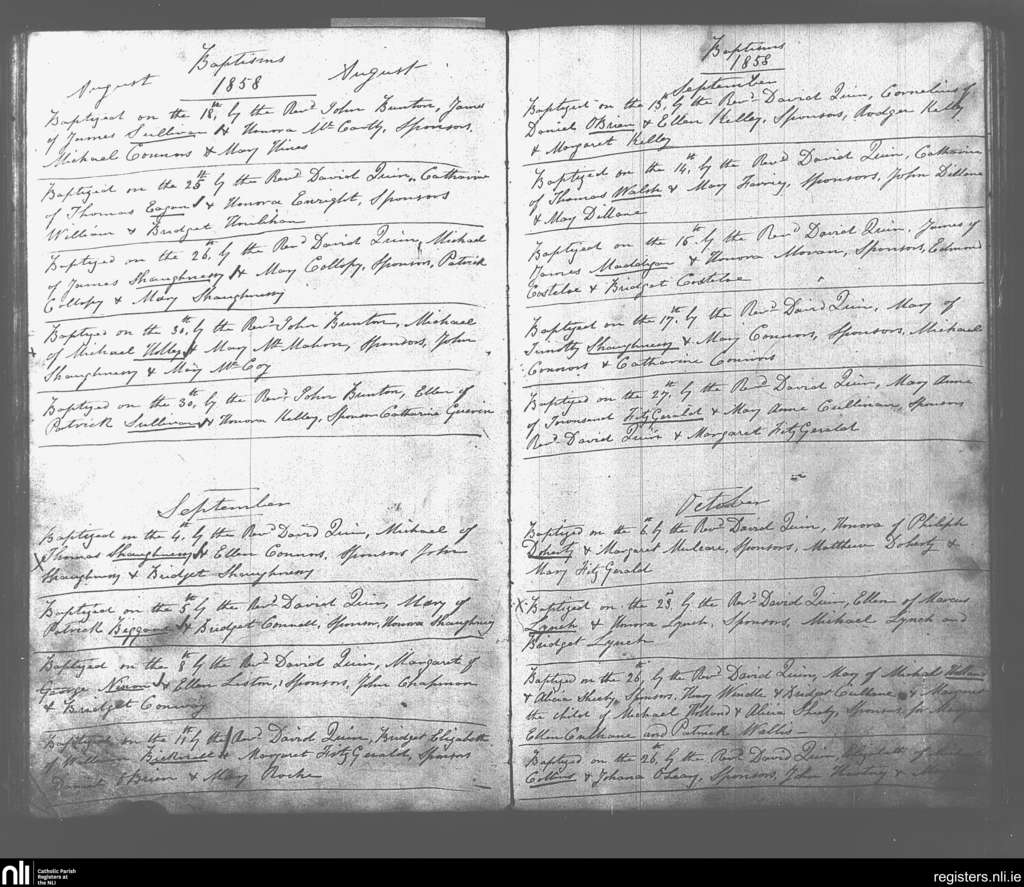 Baptisms
August 1858 August
Baptized on the 18th, by the Revd. John Bunton, James
of James Sullivan & Honora Mc Carthy, Sponsors,
Michael Connors & Mary Hines
Baptized on the 25th by the Revd. David Quin, Catharine
of Thomas Eagan & Honora Enright, Sponsors
William & Bridget Houlihan
Baptized on the 26th, by the Revd. David Quin, Michael
of James Shaughnessy & Mary Collopy, Sponsors, Patrick
Collopy & Mary Shaughnessy
Baptized on the 30th, by the Revd. John Bunton, Michael
of Michael & Mary Mc Mahon, Sponsors, John
Shaughnessy & Mary Mc Coy
Baptized on the 30th, by the Revd. John Bunton, Ellen of
Patrick Sullivan & Honora Kelley, Sponsor Catharine Guerin
September
Baptized on the 4th, by the Revd. David Quin, Michael of
Thomas Shaughnessy & Ellen Connors, Sponsors John
Shaughnessy & Bridget Shaughnessy
Baptized on the 5th by the Revd. David Quin, Mary of
Patrick & Bridget Connell, Sponsor, Honora Shaughnessy
Baptized on the 8th by the Revd. David Quin, Margaret of
George & Ellen Liston, Sponsors, John Chapman
& Bridget Conway
Baptized on the by the Revd. David Quin, Bridget Elizabeth
of William & Margaret FitzGerald, Sponsors
Daniel O'Brien & Mary Roche
Baptisms
1858
September
Baptized on the 13th, by the Revd. David Quin, Cornelius of
Daniel O'Brien & Ellen Kelley, Sponsors, Rodger Kelley
& Margaret Kelley
Baptized on the 14th, by the Revd. David Quin, Catharine
of Thomas Walsh & Mary, Sponsors, John Dillane
& Mary Dillane
Baptized on the 16th by the Revd. David Quin, James of
James Maddigan & Honora Moran, Sponsors, Edmond
Costeloe & Bridget Costeloe
Baptized on the 17th, by the Revd. David Quin, Mary of
Timothy Shaughnessy & Mary Connors, Sponsors, Michael
Connors & Catharine Connors
Baptized on the 27th, by the Revd. David Quin, Mary Anne
of Townsend FitzGerald & Mary Anne Cullinan, Sponsors
Revd. David Quin & Margaret FitzGerald
October
Baptized on the 6th by the Revd. David Quin, Honora of Philiph
Doherty & Margaret, Sponsors, Matthew Doherty &
Mary FitzGerald
Baptized on the 23, by the Revd. David Quin, Ellen of Marcus
Lynch & Honora Lynch, Sponsors, Michael Lynch and
Bridget Lynch
Baptized on the 26th, by the Revd. David Quin, Mary of Michael Holland
& Alicia Sheehy, Sponsors, Henry Windle & Bridget Culhane & Margaret
the child of Michael Holland & Alicia Sheehy, Sponsors for
Ellen Culhane and Patrick Wallis
Baptized on the 26th, by the Revd. David Quin, Elizabeth of
Collins & Johana O'Leary, Sponsors, John &
nli Catholic Parish
Registers at
the NLI
registers.nli.ie